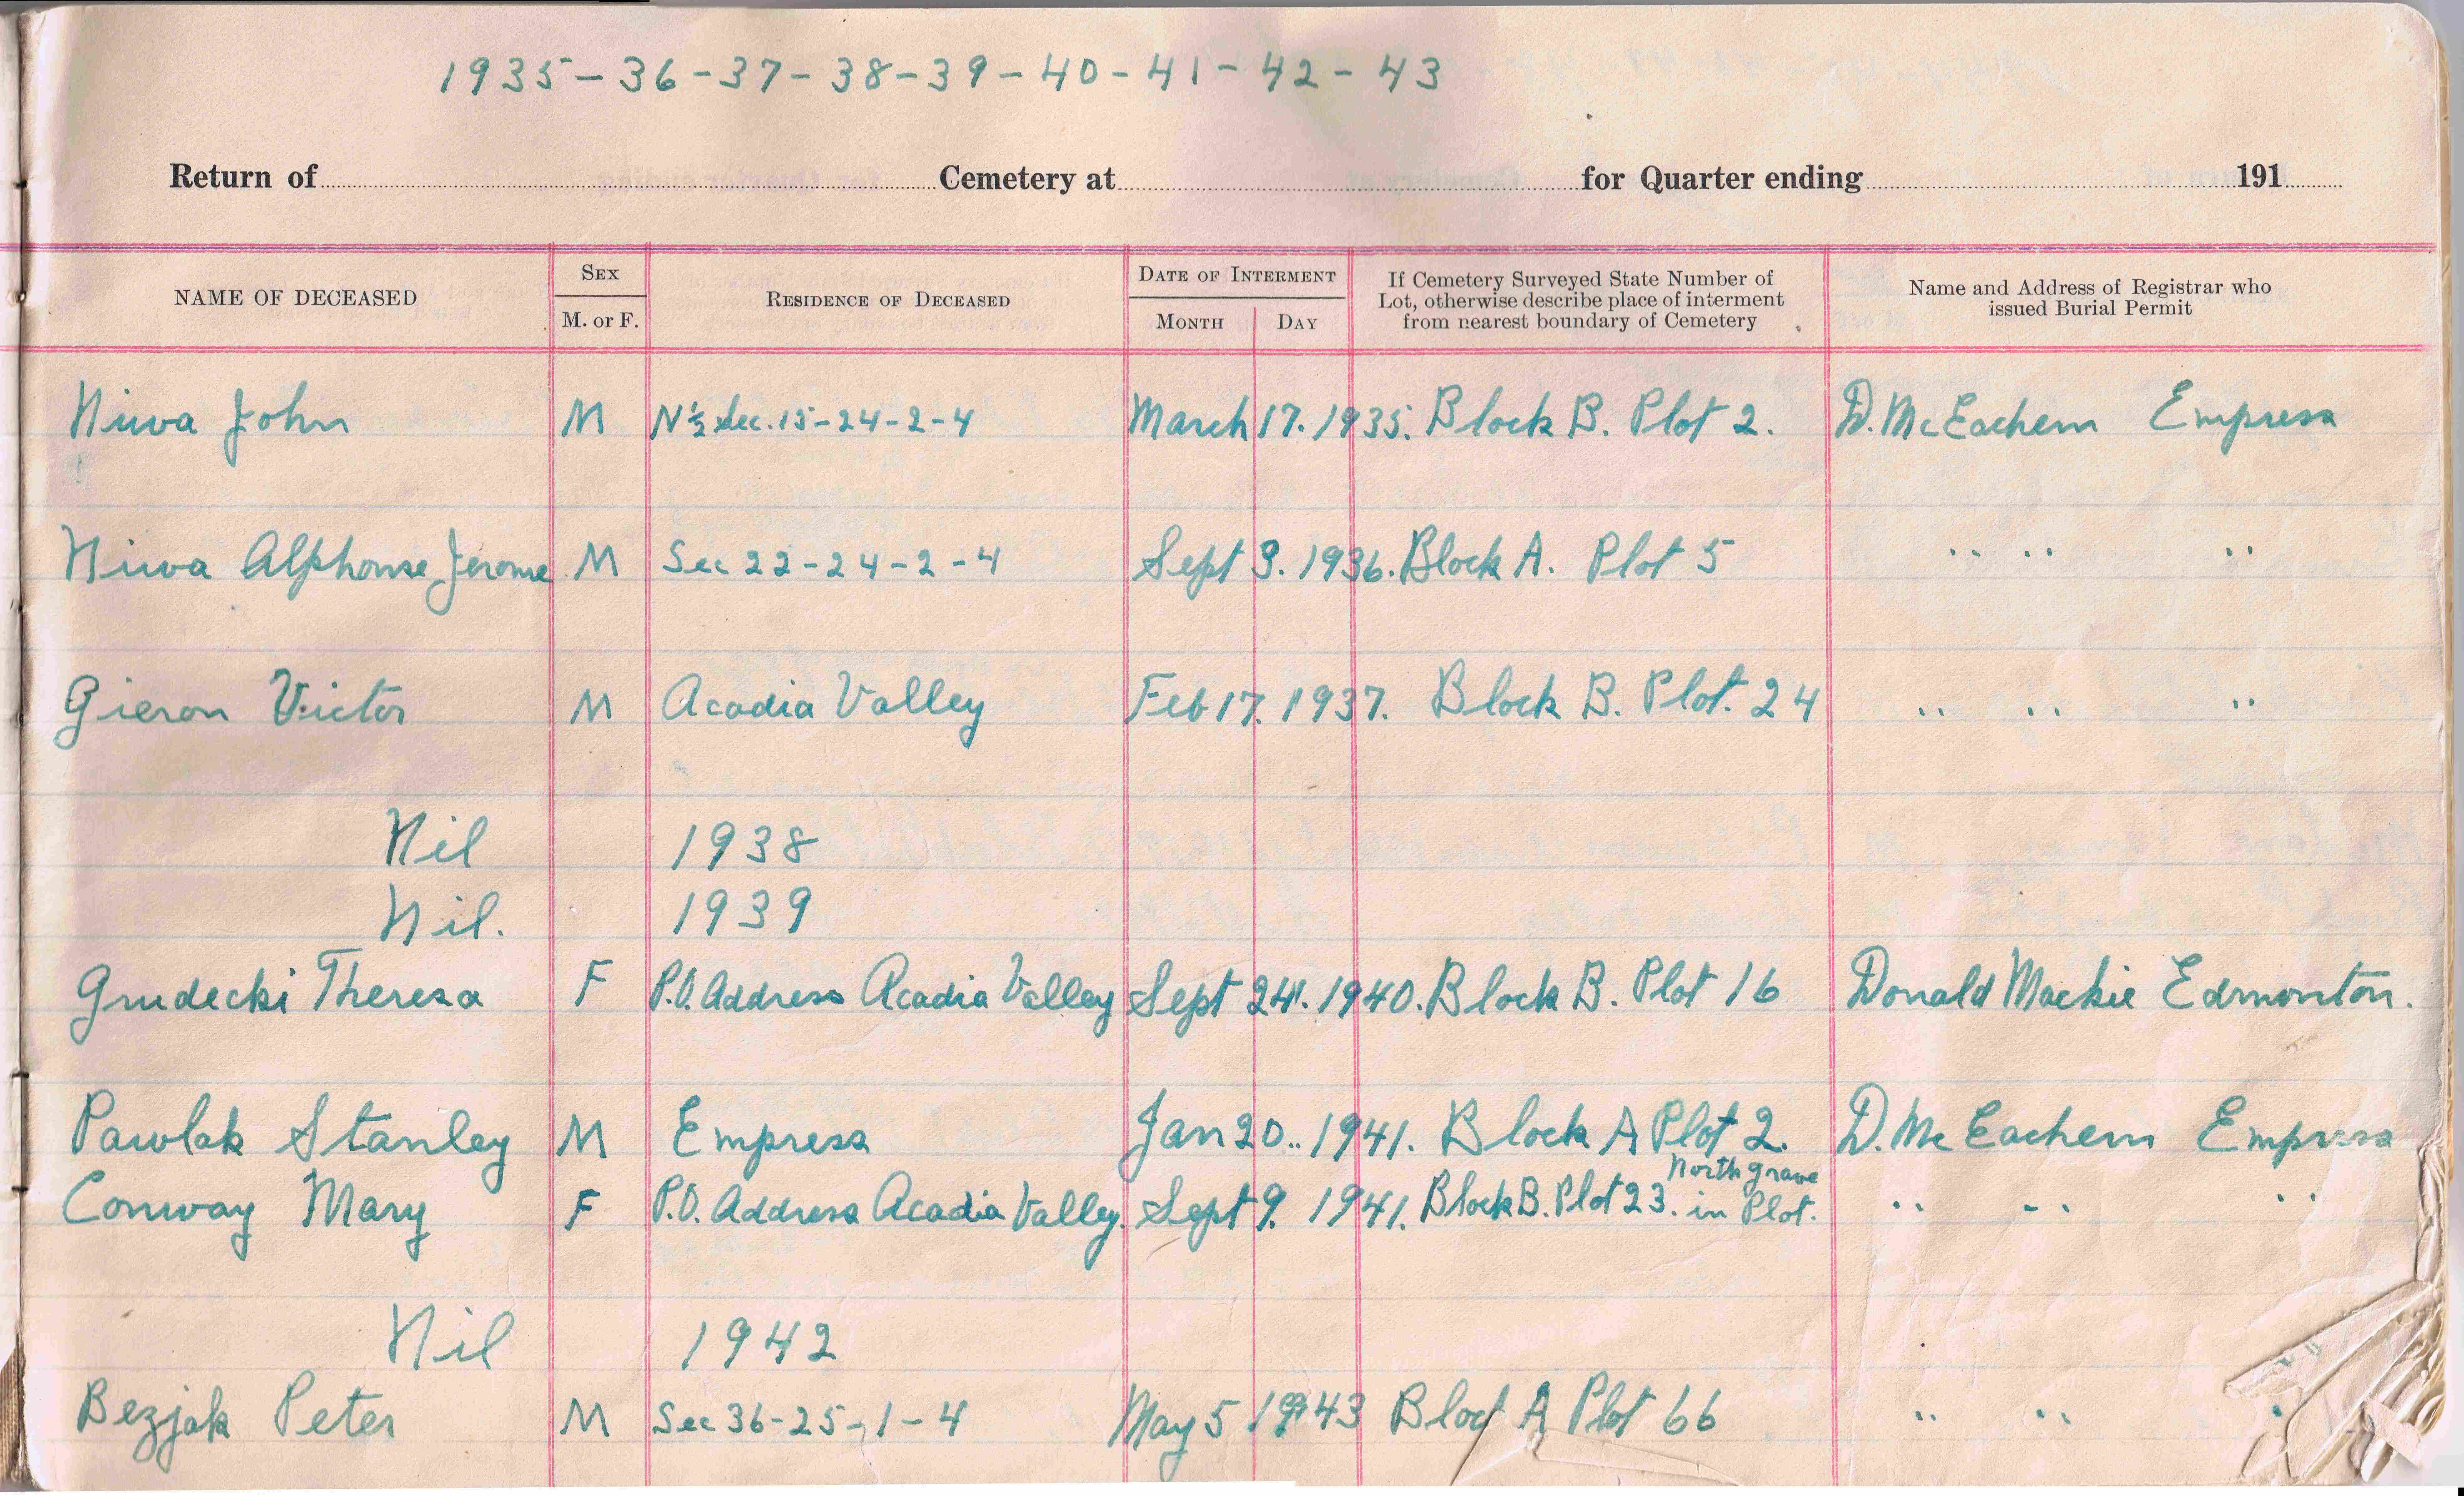 1935-36-37-38-39-40-41-42-43
Return of Cemetery at for Quarter ending 191
NAME OF DECEASED
SEX
M. or F.
RESIDENCE OF DECEASED
DATE OF INTERMENT
MONTH DAY
If Cemetery Surveyed State Number of
Lot, otherwise describe place of interment
from nearest boundary of Cemetery
Name and Address of Registrar who
issued Burial Permit
Niwa John M N½ Sec. 15-24-2-4 March 17. 1935. Block B. Plot 2. D. McEachern Empress
Niwa Alphonse Jerome M Sec 22-24-2-4 Sept 3. 1936. Block A. Plot 5 " " "
Gieron Victor M Acadia Valley Feb 17. 1937. Block B. Plot. 24 " " "
Nil 1938
Nil. 1939
Grudecki Theresa F P.O. Address Acadia Valley Sept 24. 1940. Block B. Plot 16 Donald Mackie Edmonton.
Pawlak Stanley M Empress Jan 20.. 1941. Block A Plot 2. D. McEachern Empress
Conway Mary F P.O. Address Acadia Valley. Sept 9. 1941. Block B. Plot 23. North grave in Plot. " " "
Nil 1942
Bezjak Peter M Sec 36-25-1-4 May 5 1943 Block A Plot 66 " " "